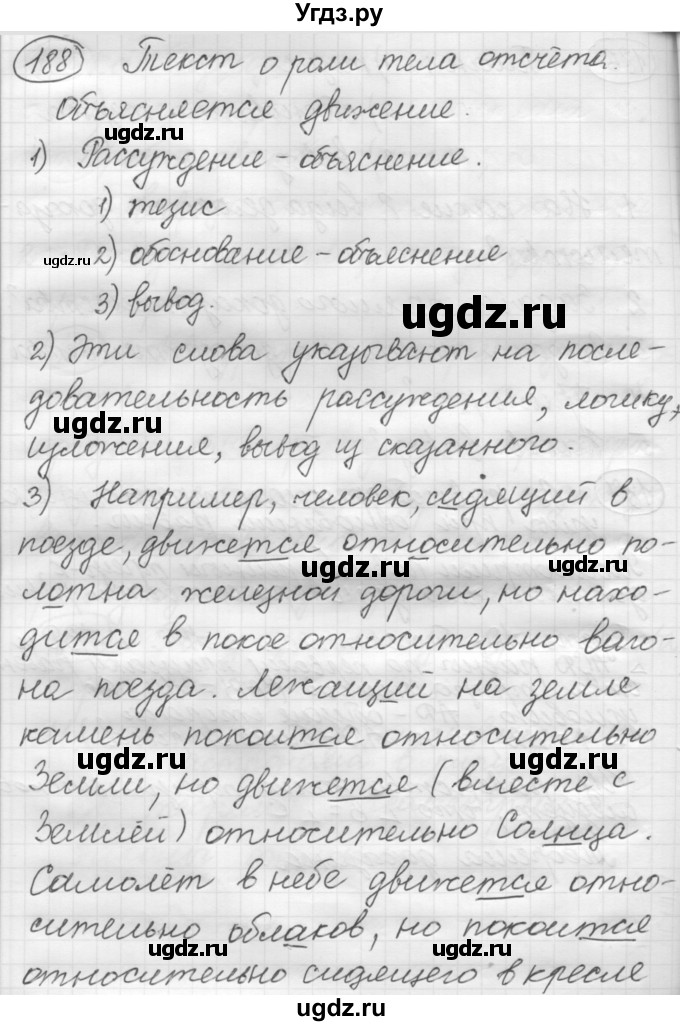 Угдз.ру
188 Текст о роли тела отсчёта.
Объясняется движение.
ugdz.ru
1) Рассуждение - объяснение.
1) тезис
ugdz.ru
ugdz.ru 2) обоснование - объяснение
3) вывод.
ugdz.ru
2) Эти слова указывают на после-
довательность рассуждения, логику,
ugdz.ru
изложения, вывод из сказанного.
3) Например, человек, сидящий в
поезде, движется относительно по-
ugdz.ru ugdz.ru
лотна железной дороги, но нахо-
дится в покое относительно ваго-
на поезда. Лежащий на земле
камень покоится относительно
ugdz.ru ugdz.ru
Земли, но движется (вместе с
Землёй) относительно Солнца.
ugdz.ru
Самолёт в небе движется отно-
сительно облаков, но покоится
ugdz.ru ugdz.ru
относительно сидящего в кресле
ugdz.ru